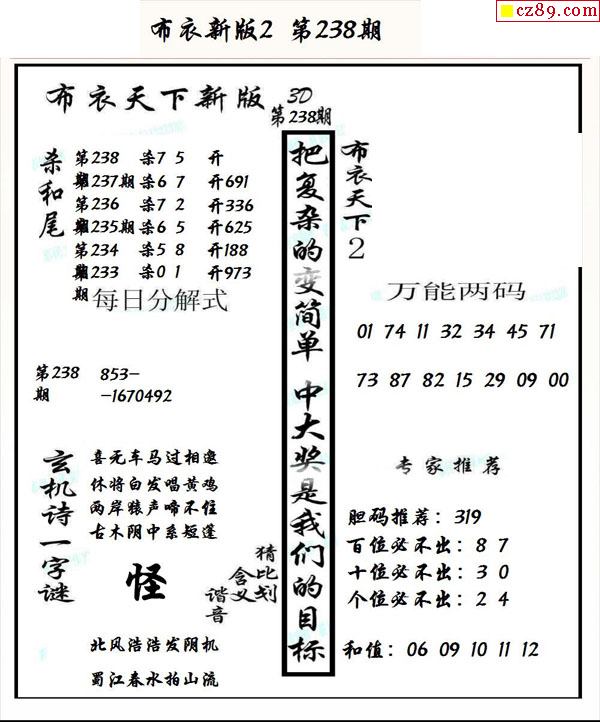 cz89.com
布衣新版2 第238期
布衣天下新版
3D
第238期
杀和尾
第238 杀7 5 开
第237期 杀6 7 开691
第236 杀7 2 开336
第235期 杀6 5 开625
第234 杀5 8 开188
第233 杀0 1 开973
期
每日分解式
第238期
853-
-1670492
玄机诗一字谜
喜无车马过相邀
休将白发唱黄鸡
两岸猿声啼不住
古木阴中系短蓬
怪
猜比划
含义
谐音
北风浩浩发阴机
蜀江春水拍山流
把复杂的变简单 中大奖是我们的目标
布衣天下2
万能两码
01 74 11 32 34 45 71
73 87 82 15 29 09 00
专家推荐
胆码推荐：319
百位必不出：8 7
十位必不出：3 0
个位必不出：2 4
和值：06 09 10 11 12